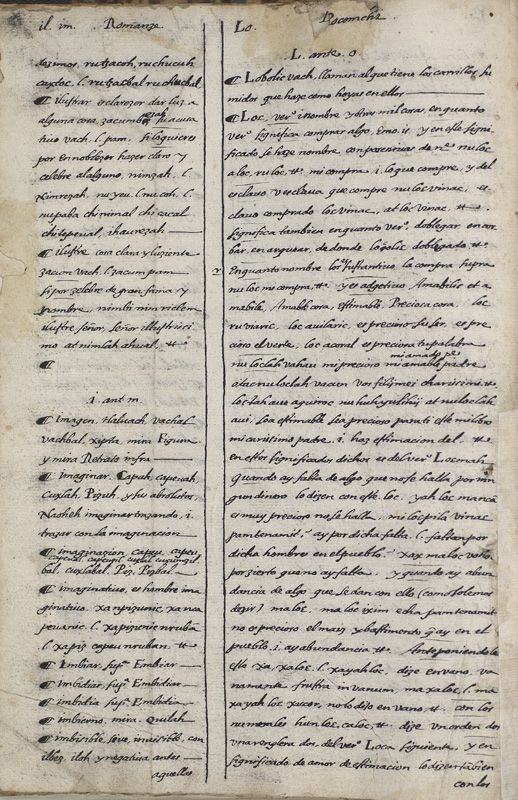 il. im. Romanze
dezimos, rutzacoh, ruchucuh
cuxloc. l. rutzacbal ruchucbal,
¶ ilustrar esclarezer dar luz, a
alguna cosa, zacumbezah, su actu
tiuo vach. l. pam. si lo quieres
por ennoblezer hazer claro y
celebre al alguno, nimzah, l.
ximrezah, nu yeu. l. nu coh. l.
nupaba chi nimal chi cacal
chitepeual, ihaurezah
¶ ilustre cosa clara y luziente
zacum vach. l. zacum pam
si por zelebre de gran fama y
nombre, nimli nim rielem
ilustre señor, señor illustrissi
mo at nimlah ahaual, &c
¶
I. ant m.
¶ Imagen. Haluach, vachal
vachbal, xipta, mira Figura
y mira Retrato infra
¶ imaginar. Capah, capeuah,
Cuxlah, Pizuh, y sus absolutos,
Naoheh imaginar trazando, i.
trazar con la imaginacion
¶ imaginazion capeu, capeu
capeual, capeunzil, cuxlal, cuxlunzil
bal, cuxlabal, Piz, Pizbal
¶ imaginatiuo, es hombre ima
ginatiuo, xa npizunic, xa nca
peuanic. l. xa pizunic nruban
l. xa piz capeu nruban, &c
¶ imbiar, supr. Embiar
¶ imbidiar, supr. Embidiar
¶ imbidia supr. Embidia
¶ imbierno, mira. Quilah
¶ imbisible, siue, inuisible, con
ilbez, ilah y negatiua antes
aquellos
Lo. Pocomchi
L. ante. o
¶ Lobolic vach, llaman al que tiene los carrillos, su
midos que haze como hoyas en ellos
¶ Loc, ver° i nombre y otras mil cosas, enquanto
ver° significa comprar algo, Emo. is, y en este signi
ficado se haze nombre con possesiuas de ne nu loc
a loc, ru loc, &c mi compra, i. lo que compre, y del
esclauo v esclaua que compre nu loc vinac, es
clauo comprado loc vinac, at loc vinac, &c
significa tambien enquanto ver°, doblegar, encor
bar, enarquear, de donde lo golic doblegado &c
Enquanto nombre loc substantiuo la compra supra
nu loc mi compra, &c y es adjetiuo Amabilis et a
mabile, Amable cosa, estimable, Preciosa cosa, loc
ru varic, loc auilaric, es precioso su ser, es pre
cioso el verte, loc acoral es preciosa tu palabra
nu loclah vahau mi precioso mi amado pe mi amable padre
o'ta'c nu loclah vacun vos filij mei charissimi, &c
loc tah aue aguiroc nu huh, yuthiij at nu loc lah
aui. sea estimable, sea precioso para ti este mi libro
mi carissimo padre. i. haz estimacion del, &c
en estos significados dichos es del ver° Locmah
quando ay falta de algo que no se halla por nin
gun dinero lo dizen con este. loc. yah loc manca
es muy precioso no se halla, mi loc pila vinac
pam tenamit, ay por dicha falta. l. faltan por
dicha hombres en el pueblo. xax maloc vohoc
por zierto que no ay falta. y quando ay abun
dancia de algo que se dan con ello (como solemos
dezir) maloc, ma loc ixim echa pam tenamit
no es precioso el maiz y bastimento q̃ ay en el
pueblo, i. ay abundancia &c Anteponiendole
esto xa, xaloc. l. xayahloc, dize en vano, va
namente frustra in vanum, ma xaloc, l. ma
xayah loc xucor, no lo dijo en vano, &c con los
numerales hun loc, caloc, &c dize vn orden dos
vna renglera dos, del ver° Loca siguiente, y en
significado de amor de estimacion lo dizen tabien
con los